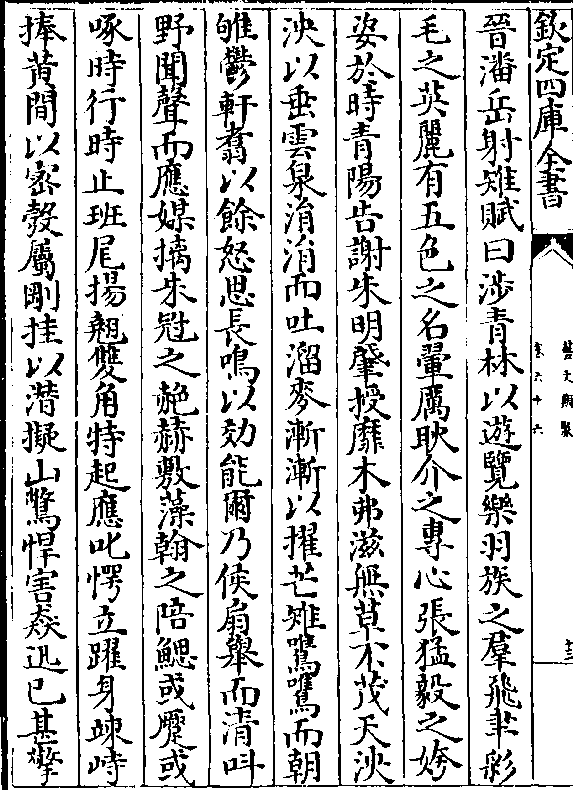 欽定四庫全書
藝文類聚
卷六十六
晉潘岳射雉賦曰涉青林以遊覽樂羽族之羣飛聿彩
毛之英麗有五色之名翬厲耿介之專心張猛毅之姱
姿於時青陽告謝朱明肇授靡木弗滋無草不茂天泱
泱以垂雲泉涓涓而吐溜麥漸漸以擢芒雉鷕鷕而朝
雊鬱軒翥以餘怒思長鳴以効能爾乃侯扇舉而清叫
野聞聲而應媒摛朱冠之赩赫敷藻翰之陪鰓或蹷或
啄時行時止班尾揚翹雙角特起應叱愕立躍身竦峙
捧黃間以密彀屬剛挂以潛擬山鷩悍害猋迅已甚擎